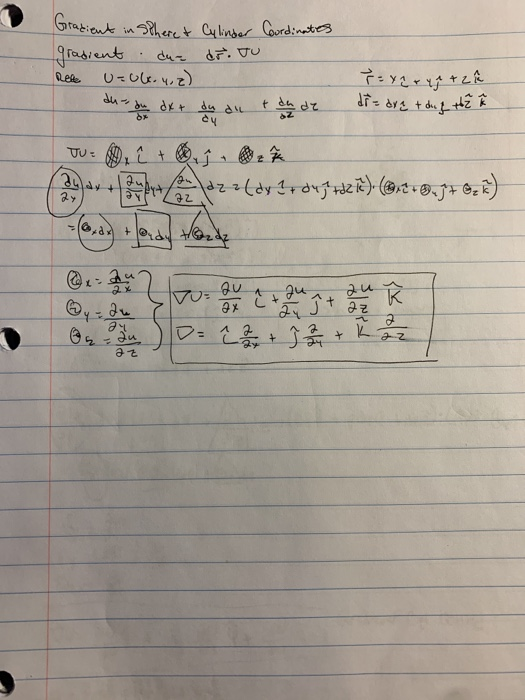 Gradient in Sphere & Cylinder Coordinates
gradient · du = dr⃗ · ∇U
U = U(x, y, z) r⃗ = xî + yĵ + zk̂
du = du/dx dx + du/dy dy + du/dz dz dr⃗ = dxî + dyĵ + dzk̂
∇U = Θₓ î + Θᵧ ĵ + Θ_z k̂
∂u/∂x dx + ∂u/∂y dy + ∂u/∂z dz = (dxî + dyĵ + dzk̂) · (Θₓî + Θᵧĵ + Θ_z k̂)
= Θₓdx + Θᵧdy + Θ_z dz
Θₓ = ∂u/∂x
Θᵧ = ∂u/∂y
Θ_z = ∂u/∂z
∇U = ∂U/∂x î + ∂u/∂y ĵ + ∂u/∂z k̂
∇ = î ∂/∂x + ĵ ∂/∂y + k̂ ∂/∂z